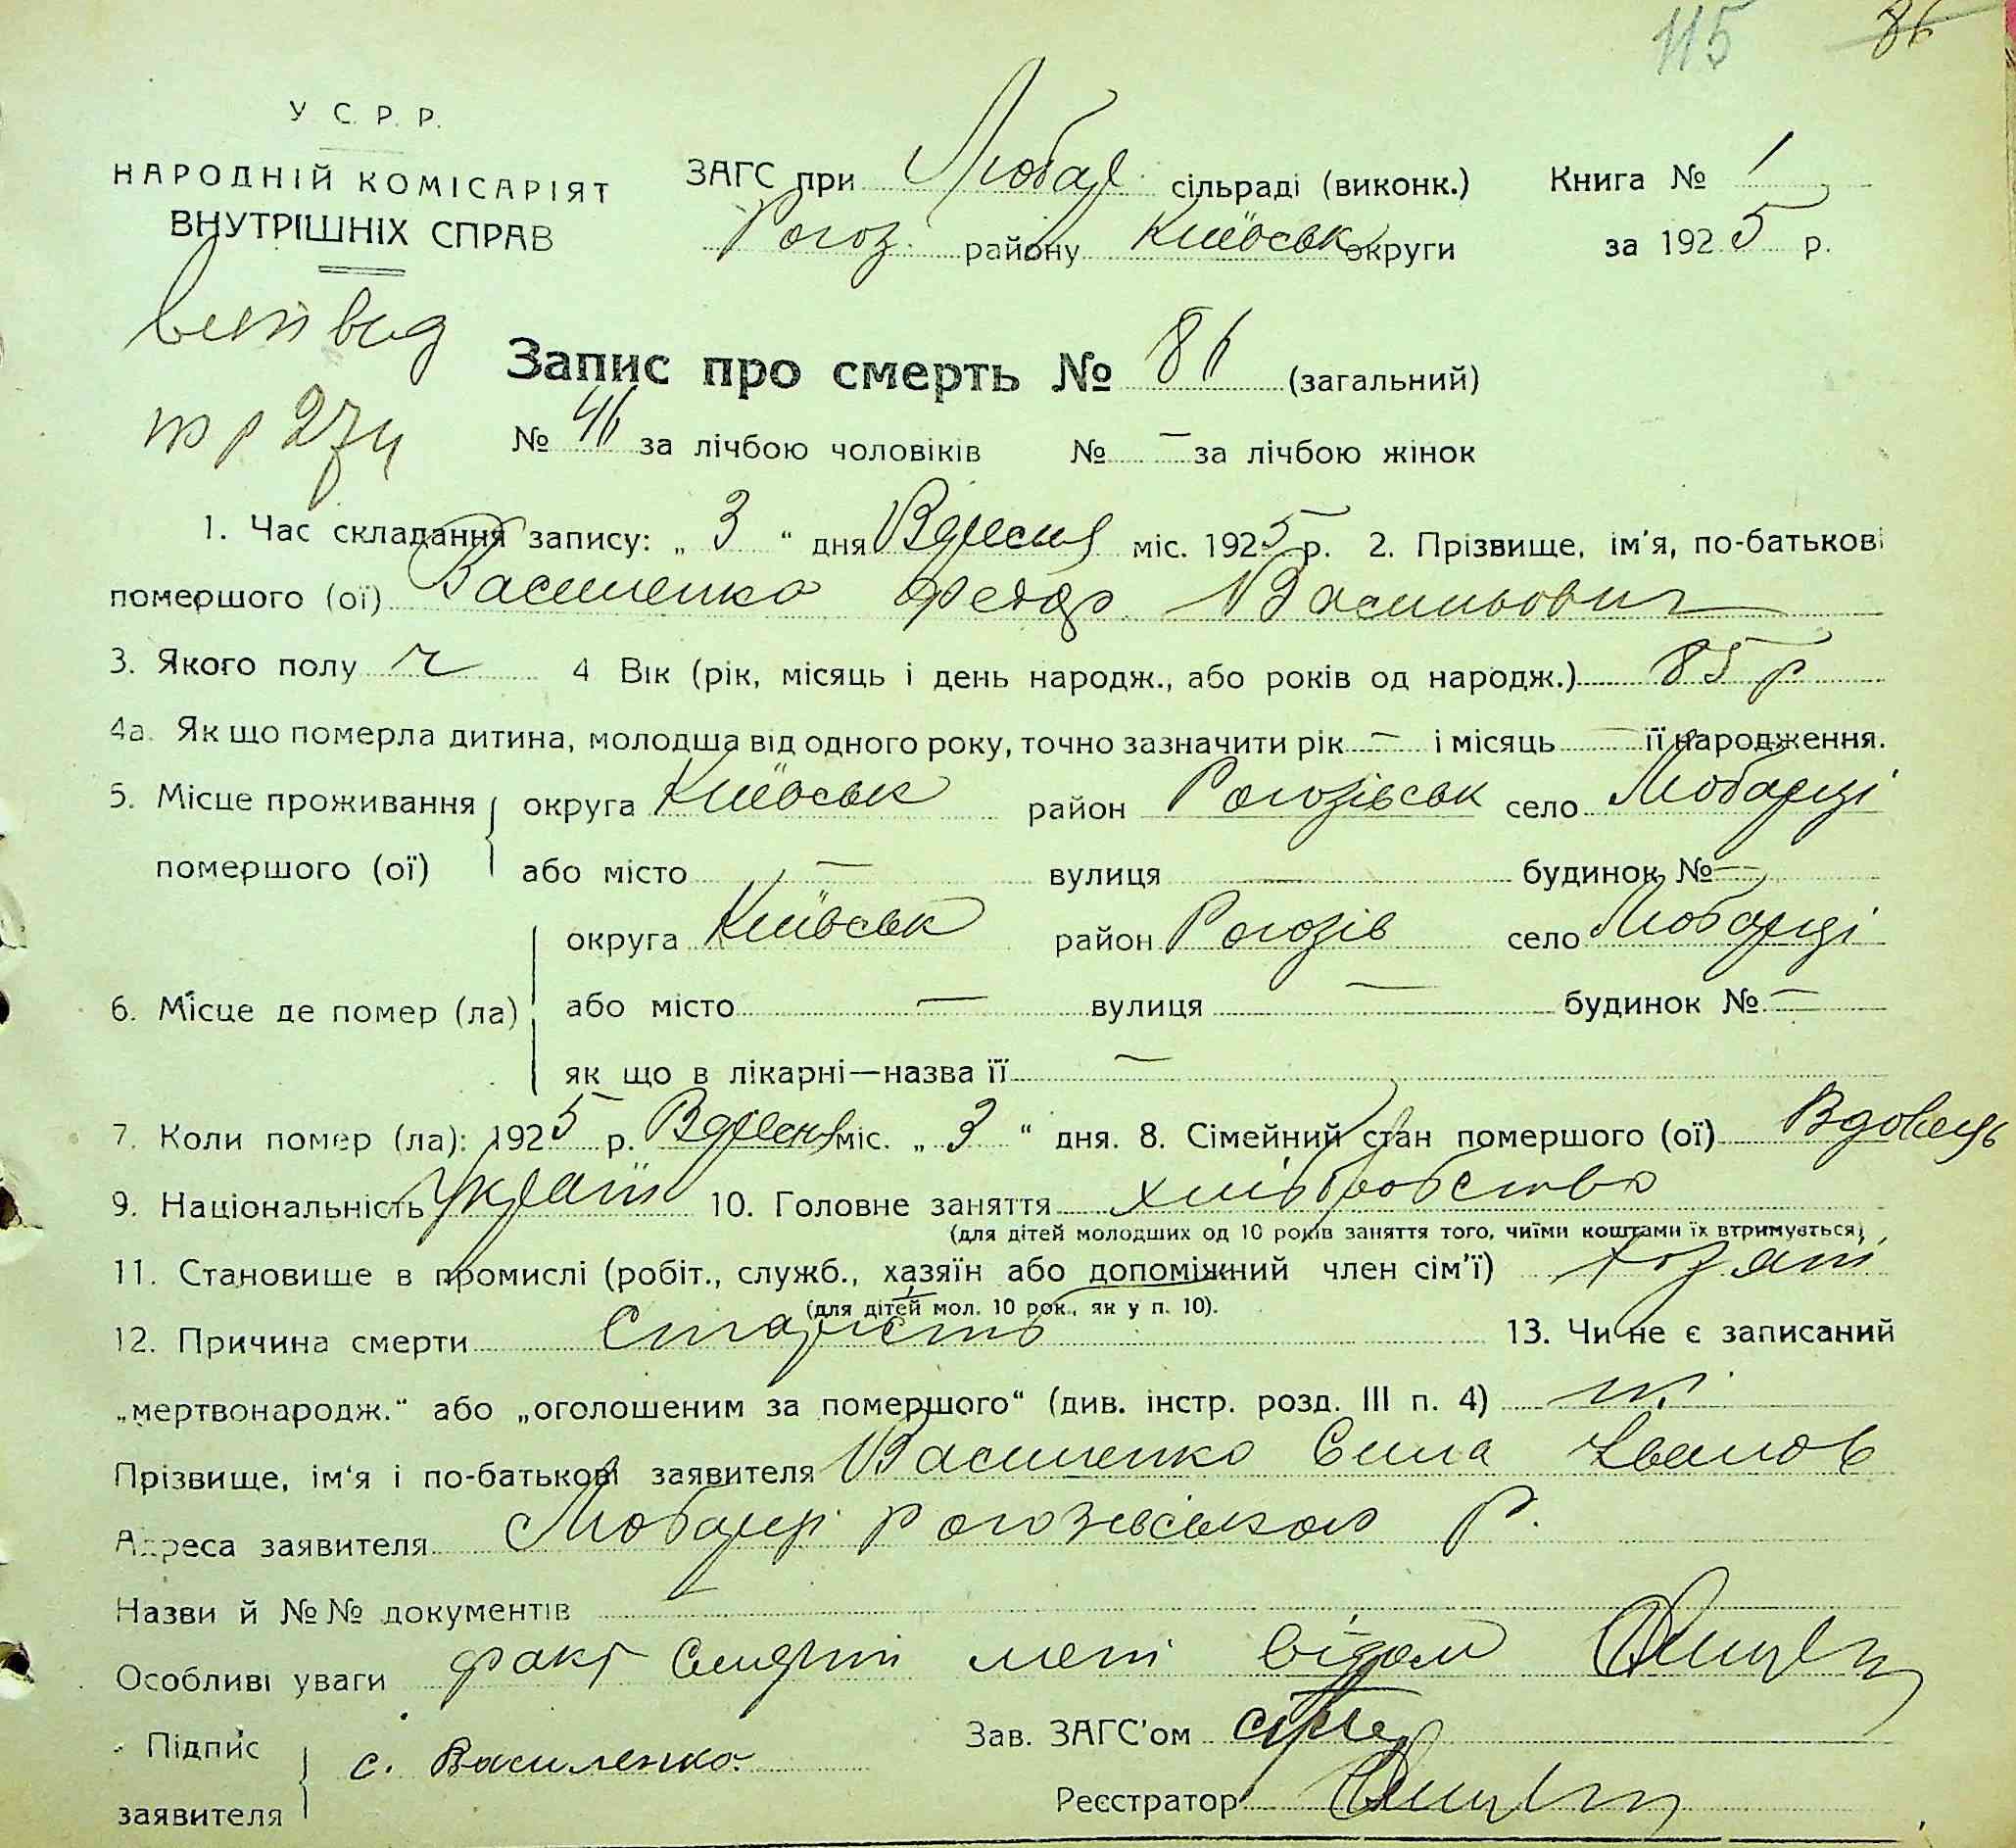 115 86
У С. Р. Р.
НАРОДНІЙ КОМІСАРІЯТ
ВНУТРІШНІХ СПРАВ
ЗАГС при Любар. сільраді (виконк.) Книга № 1
Рогоз. району Київськ округи за 1925 р.
Запис про смерть № 86 (загальний)
№ 46 за лічбою чоловіків № — за лічбою жінок
1. Час складання запису: „ 3 “ дня Вересня міс. 1925 р. 2. Прізвище, ім'я, по-батькові
помершого (ої) Василенко Федор Васильович
3. Якого полу ч 4 Вік (рік, місяць і день народж., або років од народж.) 85 р
4а. Як що померла дитина, молодша від одного року, точно зазначити рік — і місяць — її народження.
5. Місце проживання помершого (ої) округа Київськ район Рогозівськ село Любарці
або місто — вулиця — будинок № —
6. Місце де помер (ла) округа Київськ район Рогозів село Любарці
або місто — вулиця — будинок № —
як що в лікарні—назва її —
7. Коли помер (ла): 1925 р. Вересня міс. „ 3 “ дня. 8. Сімейний стан помершого (ої) Вдовець
9. Національність Україн 10. Головне заняття хліборобство
(для дітей молодших од 10 років заняття того, чиїми коштами їх втримується)
11. Становище в промислі (робіт., служб., хазяїн або допоміжний член сім'ї) хозяїн
(для дітей мол. 10 рок., як у п. 10).
12. Причина смерти Старість 13. Чи не є записаний
„мертвонародж.“ або „оголошеним за помершого“ (див. інстр. розд. III п. 4) ні
Прізвище, ім'я і по-батькові заявителя Василенко Сила Іванов
Адреса заявителя Любарці Рогозівського Р.
Назви й №№ документів
Особливі уваги факт смерти мені відом
Підпис заявителя с. Василенко. Зав. ЗАГС'ом
Реєстратор